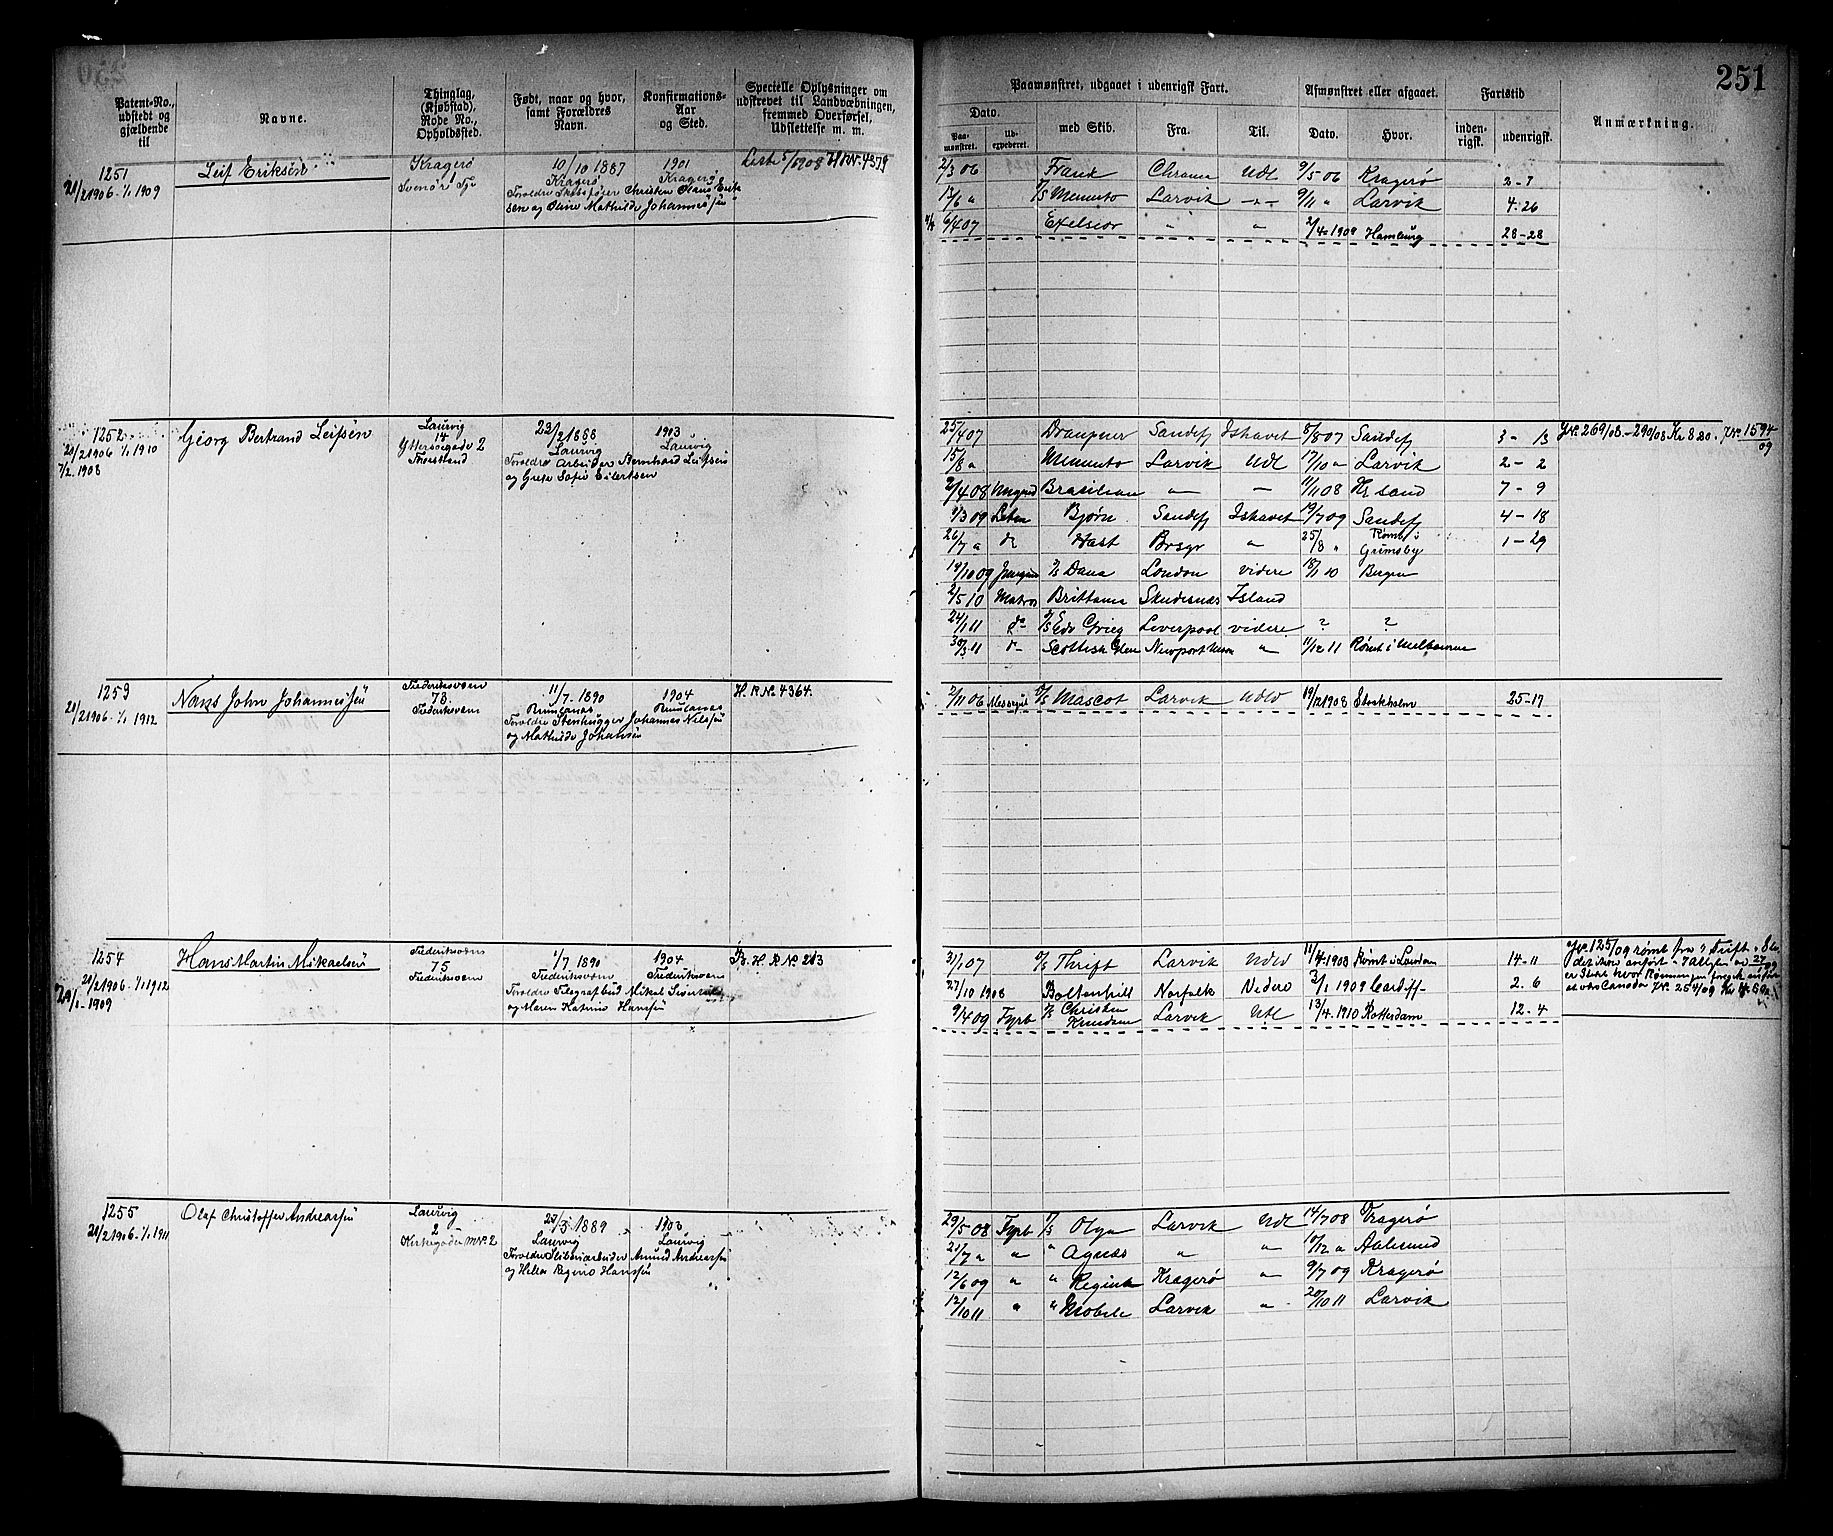 251
Patent-No., udstedt og gjældende til
Navne.
Thinglag, (Kjøbstad), Rode No., Opholdssted.
Født, naar og hvor, samt Forældres Navn.
Konfirmations-Aar og Sted.
Specielle Oplysninger om udskrevet til Landvæbningen, fremmed Overførsel, Udslettelse m. m.
Paamønstret, udgaaet i udenrigsk Fart.
Dato.
Paa-mønstret.
Ud-expederet.
med Skib.
Fra.
Til.
Afmønstret eller afgaaet.
Dato.
Hvor.
Fartstid
inden-rigsk.
udenrigsk.
Anmærkning.
1251
21/2 1906 - 1/1 1909
Leif Eriksen
Kragerø
10/10 1887
Kragerø
1901
Kragerø
Forældre Christen Olaus Erik-
sen og Oline Mathilde Johannessen
2/3 06 Frank Chrania Udl 9/5 06 Kragerø 2-7
15/6 " Memento Larvik -"- 9/11 " Larvik 4-26
6/4 07 Exelsior " " 2/4 1909 Hamburg 28-28
1252
21/2 1906 1/1 1910
7/2 1908
Georg Bertrand Leifsen
Laurvig
14
Thorstrand
23/2 1888
Laurvig
1903
Laurvig
Forældre Arbeider Bernhard Leifsen
og Grete Sofie Eilertsen
25/4 07 Draupner Sandefj Ishavet 8/8 07 Sandefj 3-13
15/8 " Memento Larvik Udl 17/10 " Larvik 2-2
2/4 08 Brasilian " - 11/11 08 Kr sand 7-9
1/3 09 Bjørn Sandefj Ishavet 19/7 09 Sandefj 4-18
26/7 " Hast " 25/8 " Rømt i Grimsby 1-29
19/10 09 Dana London videre 18/1 10 Bergen
2/5 10 Matros Brittania Skudesnæs Island
24/1 11 do Edv Grieg Leverpool videre ? ?
30/3 11 Scottish Glen Newport " 11/12 11 Rømt i Melbourne
J.Nr. 269/08.-290/08 Kr 8.80. J.Nr. 1594/09
1253
21/2 1906 - 1/1 1912
Hans John Johannessen
Frederiksværn
78
Frederiksværn
11/7 1890
1904
Forældre Stenhugger Johannes Nilssen
og Mathilde Johansen
H. R No. 4364.
2/11 06 Mascot Larvik Udld 19/12 1908 Stockholm 25-17
1254
21/2 1906 - 1/1 1912
1909
Hans Martin Mikaelsen
Frederiksværn
75
Frederiksværn
1/7 1890
Frederiksværn
1904
Frederiksværn
Forældre Telegrafbud Mikal
og Maren Katrine Hanssen
H. R No. 213
31/1 07 Thrift Larvik Udld 11/4 1908 Rømt i London 14-11
27/10 1908 Boltenhill Norfolk Videre 3/1 1909 Cardiff 2-6
9/4 09 Fyrb Christian Knudsen Larvik Udl 13/4 1910 Rotterdam 12-4
J.Nr. 125/09 rømt fra Trift
1255
21/2 1906 - 1/1 1911
Olaf Christoffer Andreassen
Laurvig
2
1889
Laurvig
1903
Laurvig
Forældre Amund Andreassen
og Helle Regine Hanssen
29/5 08 Fyrb Olga Larvik Udl 14/7 08 Kragerø
21/7 " " " Agnæs " " 10/12 " Aalesund
12/6 09 " " Regina Kragerø " 9/7 09 Kragerø
12/10 11 " " Mobile Larvik " 20/10 11 Larvik